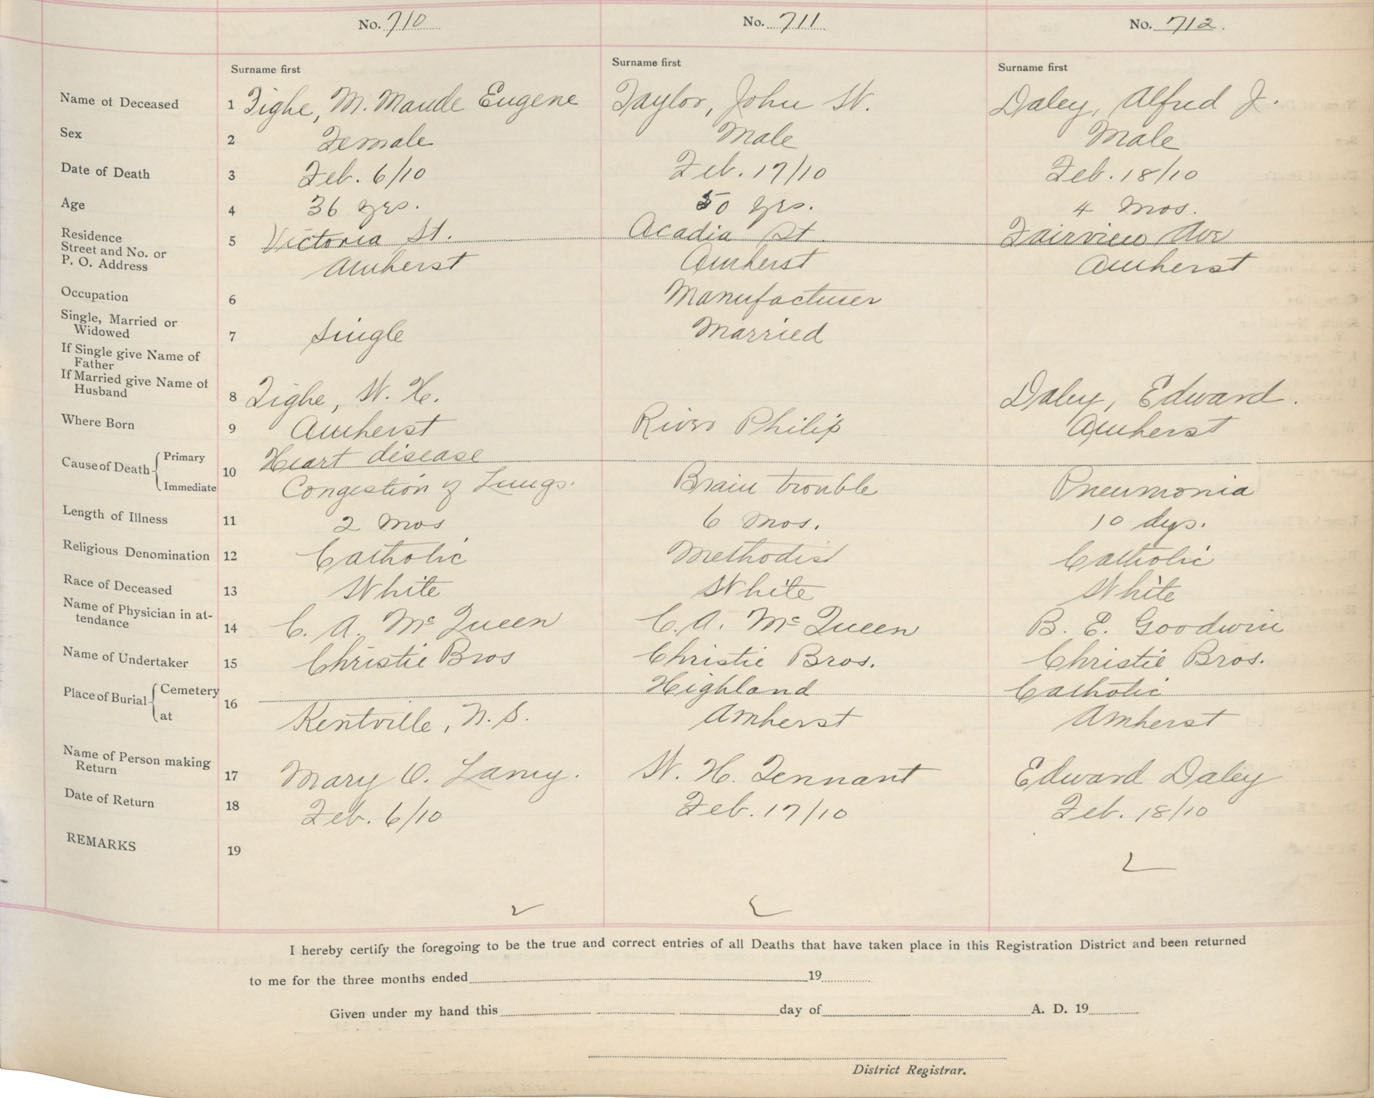 No. 710 No. 711 No. 712.
Surname first Surname first Surname first
Name of Deceased 1 Tighe, M. Maude Eugene Taylor, John W. Daley, Alfred J.
Sex 2 Female Male Male
Date of Death 3 Feb. 6/10 Feb. 17/10 Feb. 18/10
Age 4 36 yrs. 50 yrs. 4 mos.
Residence 5 Victoria St. Acadia St. Fairview Ave
Street and No. or
P. O. Address Amherst Amherst Amherst
Occupation 6 Manufacturer
Single, Married or
Widowed 7 Single Married
If Single give Name of
Father
If Married give Name of
Husband 8 Tighe, W. H. Daley, Edward.
Where Born 9 Amherst River Philip Amherst
Cause of Death Primary 10 Heart disease
Immediate Congestion of Lungs. Brain trouble Pneumonia
Length of Illness 11 2 mos 6 mos. 10 dys.
Religious Denomination 12 Catholic Methodist Catholic
Race of Deceased 13 White White White
Name of Physician in at-
tendance 14 C. A. McQueen C. A. McQueen B. E. Goodwin
Name of Undertaker 15 Christie Bros Christie Bros. Christie Bros.
Place of Burial Cemetery 16 Highland Catholic
at Kentville, N. S. Amherst Amherst
Name of Person making
Return 17 Mary O. Lamy. W. H. Tennant Edward Daley
Date of Return 18 Feb. 6/10 Feb. 17/10 Feb. 18/10
REMARKS 19
I hereby certify the foregoing to be the true and correct entries of all Deaths that have taken place in this Registration District and been returned
to me for the three months ended 19
Given under my hand this day of A. D. 19
District Registrar.